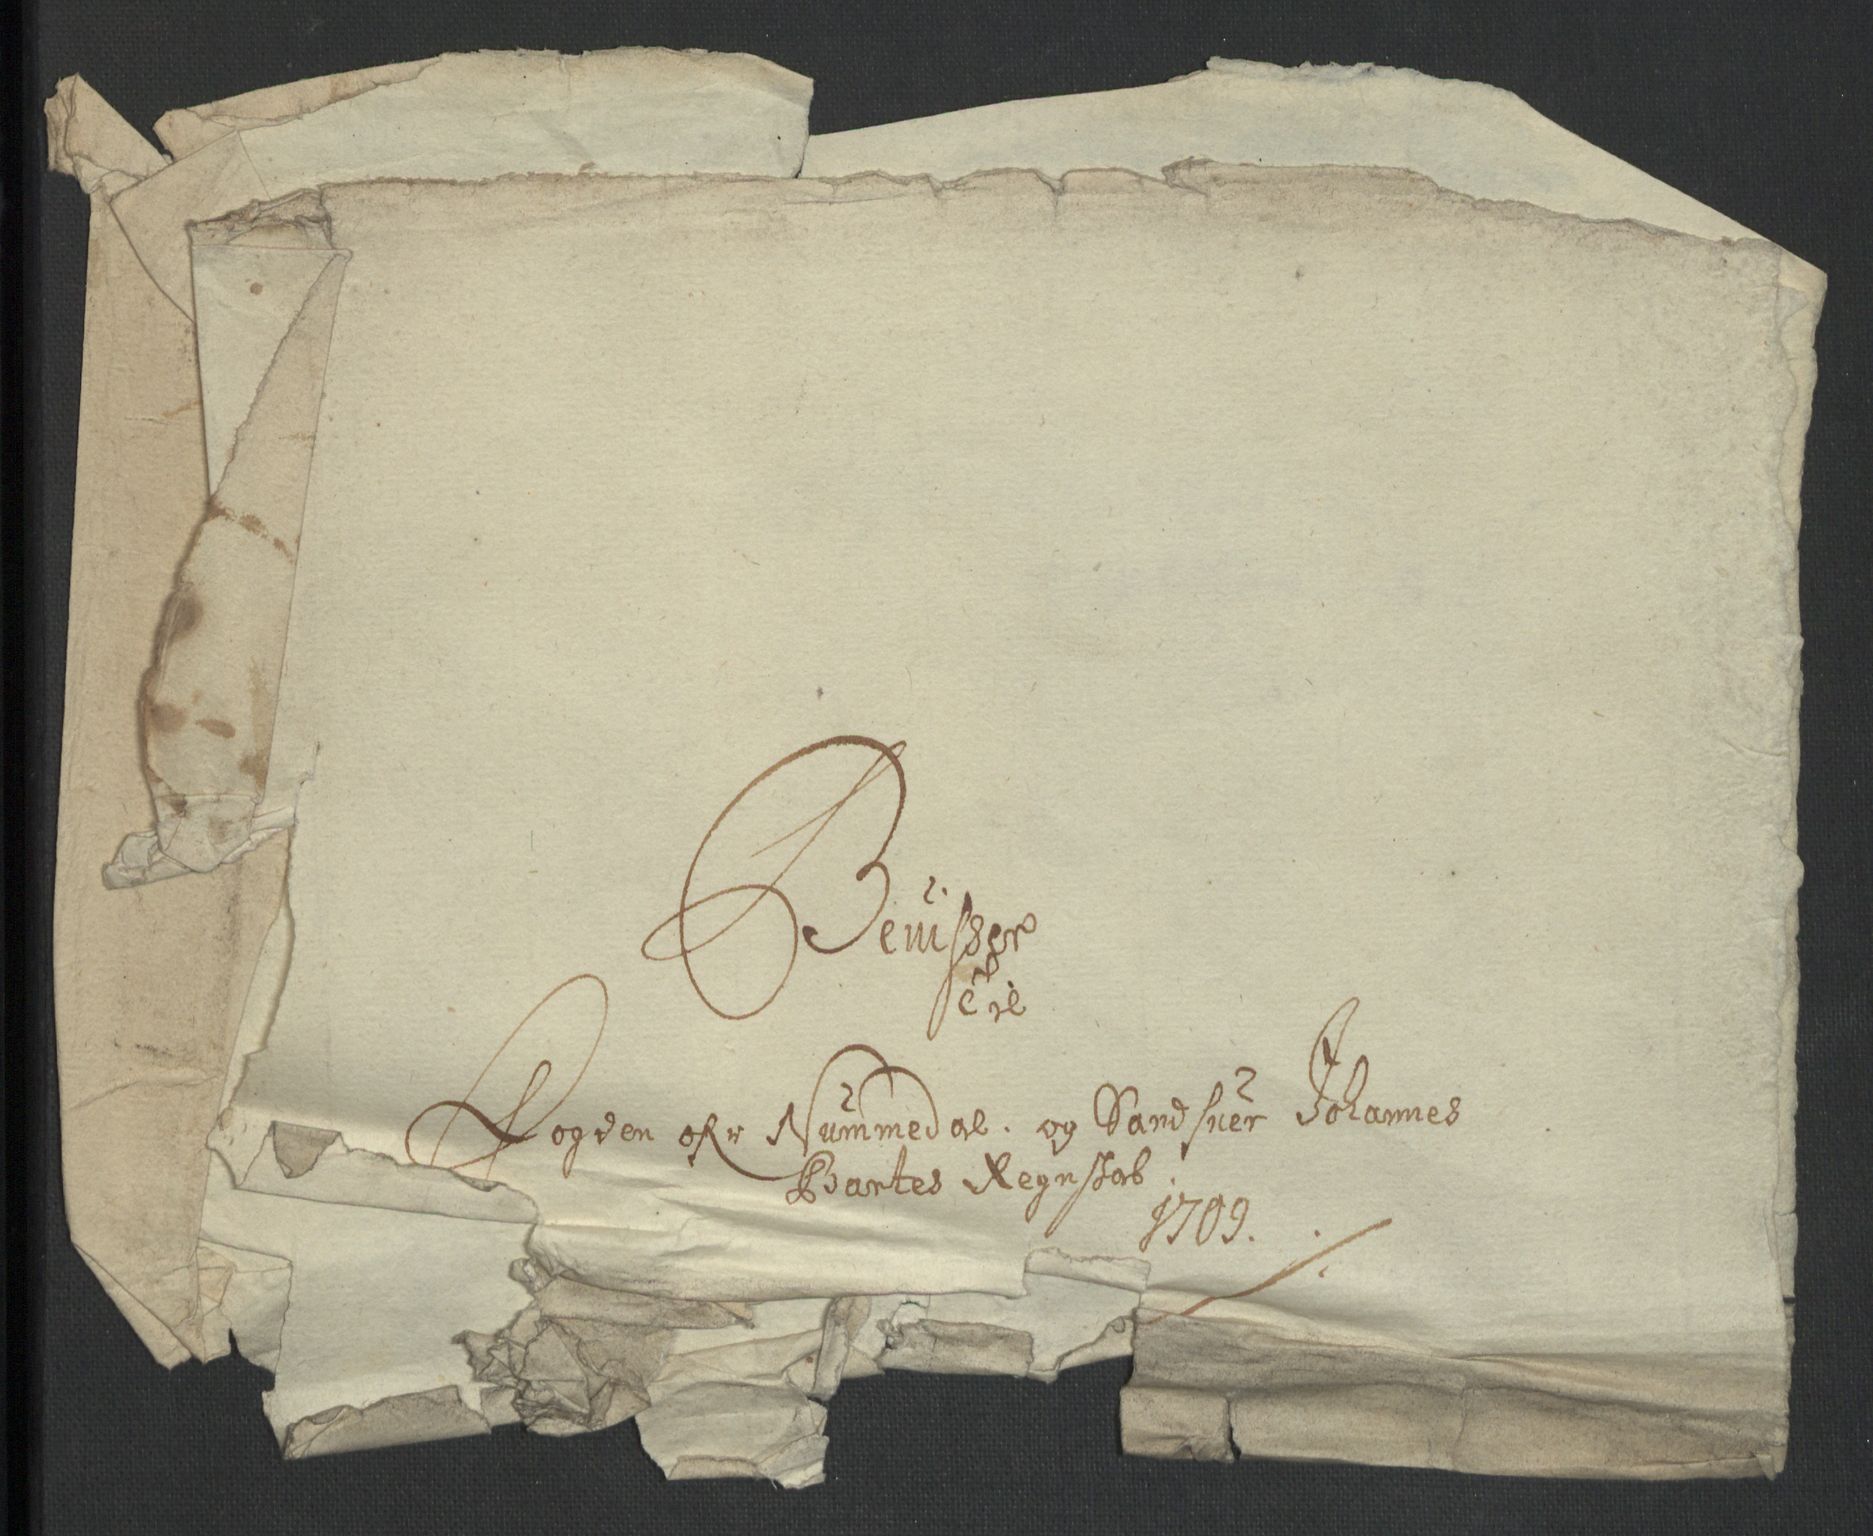 Beviisser
til
Fogden ofr Nummedal. og Sandsuer Johannes
Bartes Regnskab
1709.